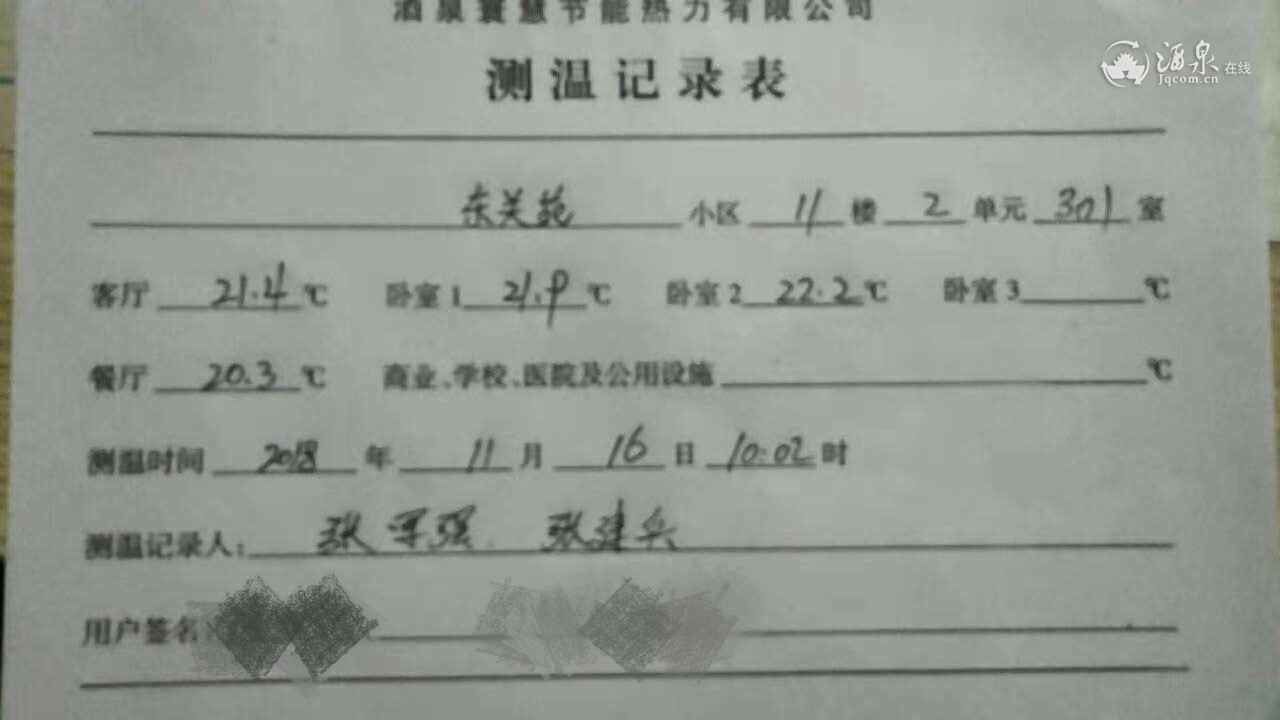 酒泉寰慧节能热力有限公司
酒泉在线
Jqcom.cn
测温记录表
东关苑 小区 11 楼 2 单元 301 室
客厅 21.4 ℃ 卧室1 21.9 ℃ 卧室2 22.2 ℃ 卧室3 ℃
餐厅 20.3 ℃ 商业、学校、医院及公用设施 ℃
测温时间 2018 年 11 月 16 日 10:02 时
测温记录人: 张军强 张建兵
用户签名: